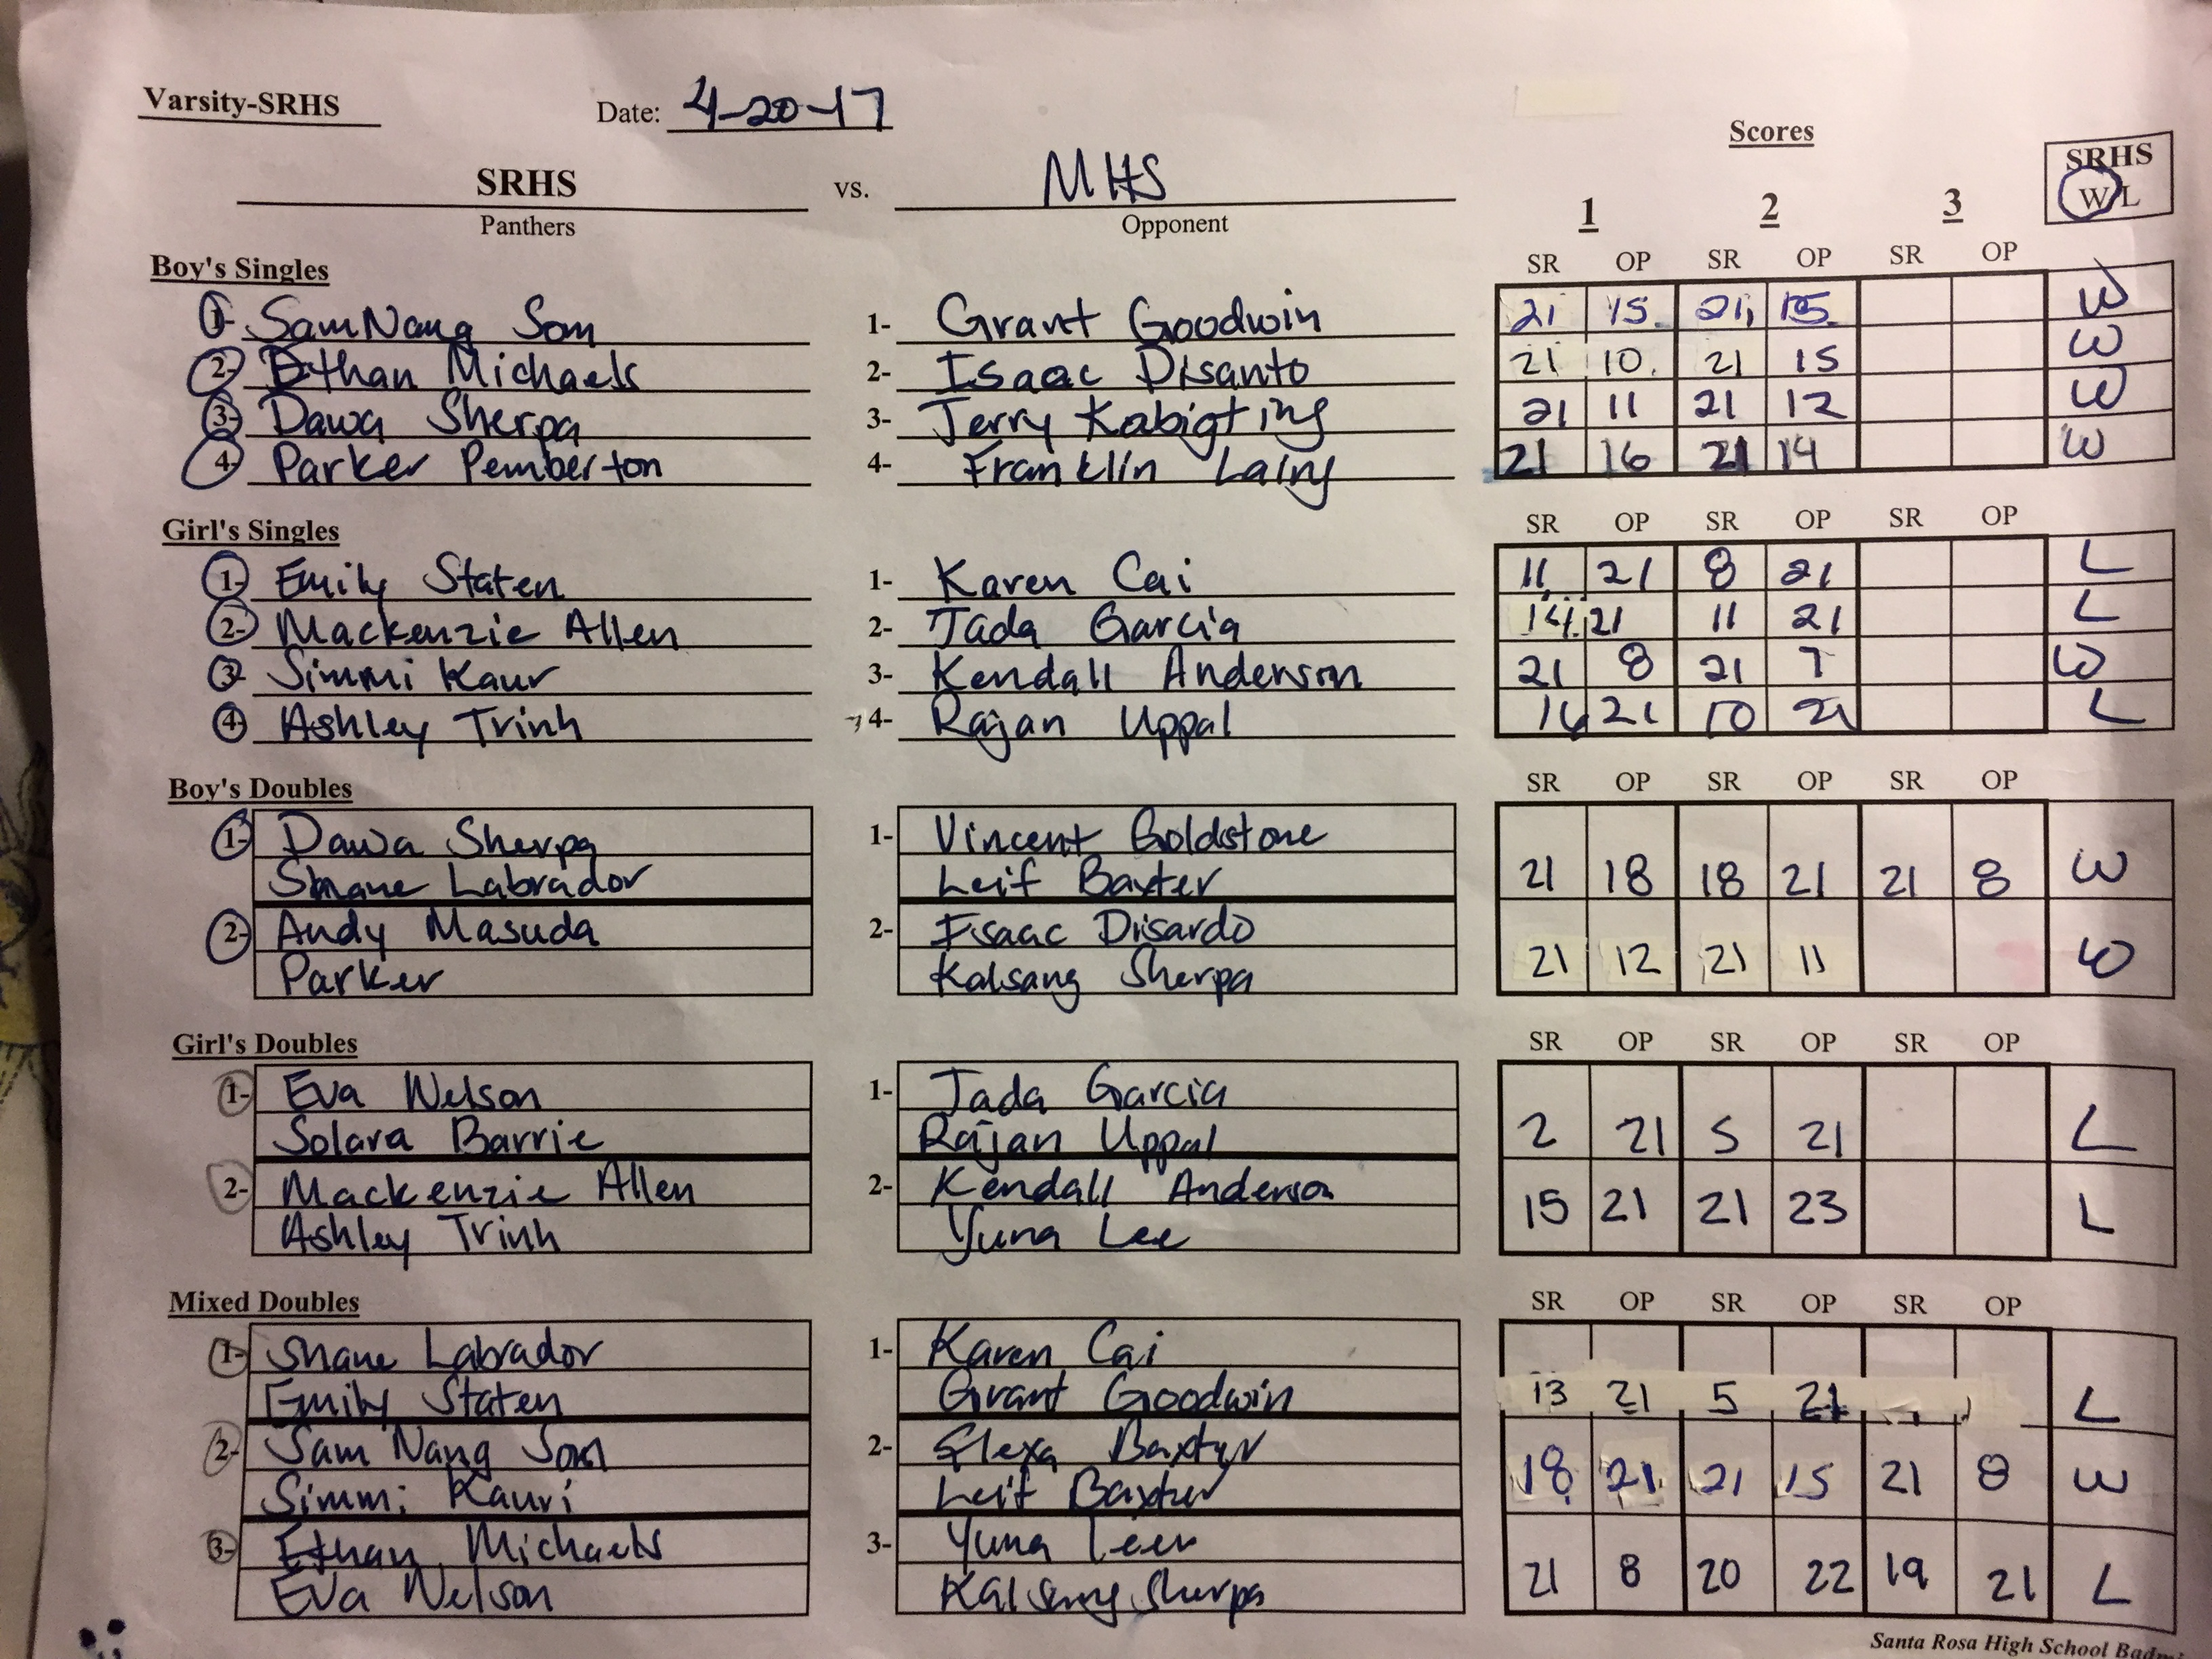 Varsity-SRHS Date: 4-20-17
Scores
SRHS vs. MHS SRHS
Panthers Opponent 1 2 3 W/L
Boy's Singles SR OP SR OP SR OP
1- SamNang Som 1- Grant Goodwin 21 15 21 15 W
2- Ethan Michaels 2- Isaac Disanto 21 10 21 15 W
3- Dawa Sherpa 3- Jerry Kabigting 21 11 21 12 W
4- Parker Pemberton 4- Franklin Laing 21 16 21 14 W
Girl's Singles SR OP SR OP SR OP
1- Emily Staten 1- Karen Cai 11 21 8 21 L
2- Mackenzie Allen 2- Jada Garcia 14 21 11 21 L
3- Simmi Kaur 3- Kendall Anderson 21 8 21 7 W
4- Ashley Trinh 4- Rajan Uppal 16 21 10 21 L
Boy's Doubles SR OP SR OP SR OP
1- Dawa Sherpa 1- Vincent Goldstone
Shane Labrador Leif Baxter 21 18 18 21 21 8 W
2- Andy Masuda 2- Isaac Disardo
Parker Kalsang Sherpa 21 12 21 11 W
Girl's Doubles SR OP SR OP SR OP
1- Eva Nelson 1- Jada Garcia
Solara Barrie Rajan Uppal 2 21 5 21 L
2- Mackenzie Allen 2- Kendall Anderson 15 21 21 23 L
Ashley Trinh Yuna Lee
Mixed Doubles SR OP SR OP SR OP
1- Shane Labrador 1- Karen Cai
Emily Staten Grant Goodwin 13 21 5 21 L
2- Sam Nang Som 2- Baxter
Simmi Kauri Leif Baxter 18 21 21 15 21 8 W
3- Ethan Michaels 3- Yuna
Eva Nelson Kalsang Sherpa 21 8 20 22 19 21 L
Santa Rosa High School